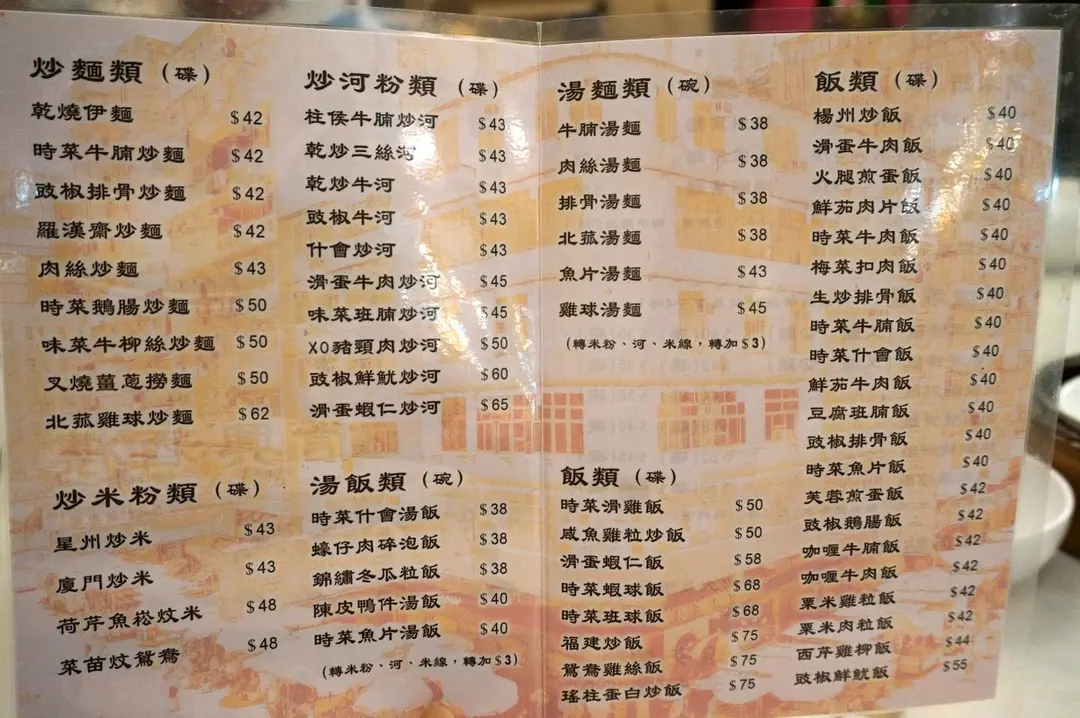 炒麵類（碟）
乾燒伊麵 $42
時菜牛腩炒麵 $42
豉椒排骨炒麵 $42
羅漢齋炒麵 $42
肉絲炒麵 $43
時菜鵝腸炒麵 $50
味菜牛柳絲炒麵 $50
叉燒薑蔥撈麵 $50
北菰雞球炒麵 $62
炒米粉類（碟）
星州炒米 $43
廈門炒米 $43
荷芹魚崧炆米 $48
菜苗炆鴛鴦 $48
炒河粉類（碟）
柱侯牛腩炒河 $43
乾炒三絲河 $43
乾炒牛河 $43
豉椒牛河 $43
什會炒河 $43
滑蛋牛肉炒河 $45
味菜班腩炒河 $45
XO豬頸肉炒河 $50
豉椒鮮魷炒河 $60
滑蛋蝦仁炒河 $65
湯飯類（碗）
時菜什會湯飯 $38
蠔仔肉碎泡飯 $38
錦繡冬瓜粒飯 $38
陳皮鴨件湯飯 $40
時菜魚片湯飯 $40
（轉米粉、河、米線，轉加$3）
湯麵類（碗）
牛腩湯麵 $38
肉絲湯麵 $38
排骨湯麵 $38
北菰湯麵 $38
魚片湯麵 $43
雞球湯麵 $45
（轉米粉、河、米線，轉加$3）
飯類（碟）
時菜滑雞飯 $50
咸魚雞粒炒飯 $50
滑蛋蝦仁飯 $58
時菜蝦球飯 $68
時菜班球飯 $68
福建炒飯 $75
鴛鴦雞絲飯 $75
瑤柱蛋白炒飯 $75
飯類（碟）
楊州炒飯 $40
滑蛋牛肉飯 $40
火腿煎蛋飯 $40
鮮茄肉片飯 $40
時菜牛肉飯 $40
梅菜扣肉飯 $40
生炒排骨飯 $40
時菜牛腩飯 $40
時菜什會飯 $40
鮮茄牛肉飯 $40
豆腐班腩飯 $40
豉椒排骨飯 $40
時菜魚片飯 $40
芙蓉煎蛋飯 $42
豉椒鵝腸飯 $42
咖喱牛腩飯 $42
咖喱牛肉飯 $42
粟米雞粒飯 $42
粟米肉粒飯 $42
西芹雞柳飯 $44
豉椒鮮魷飯 $55